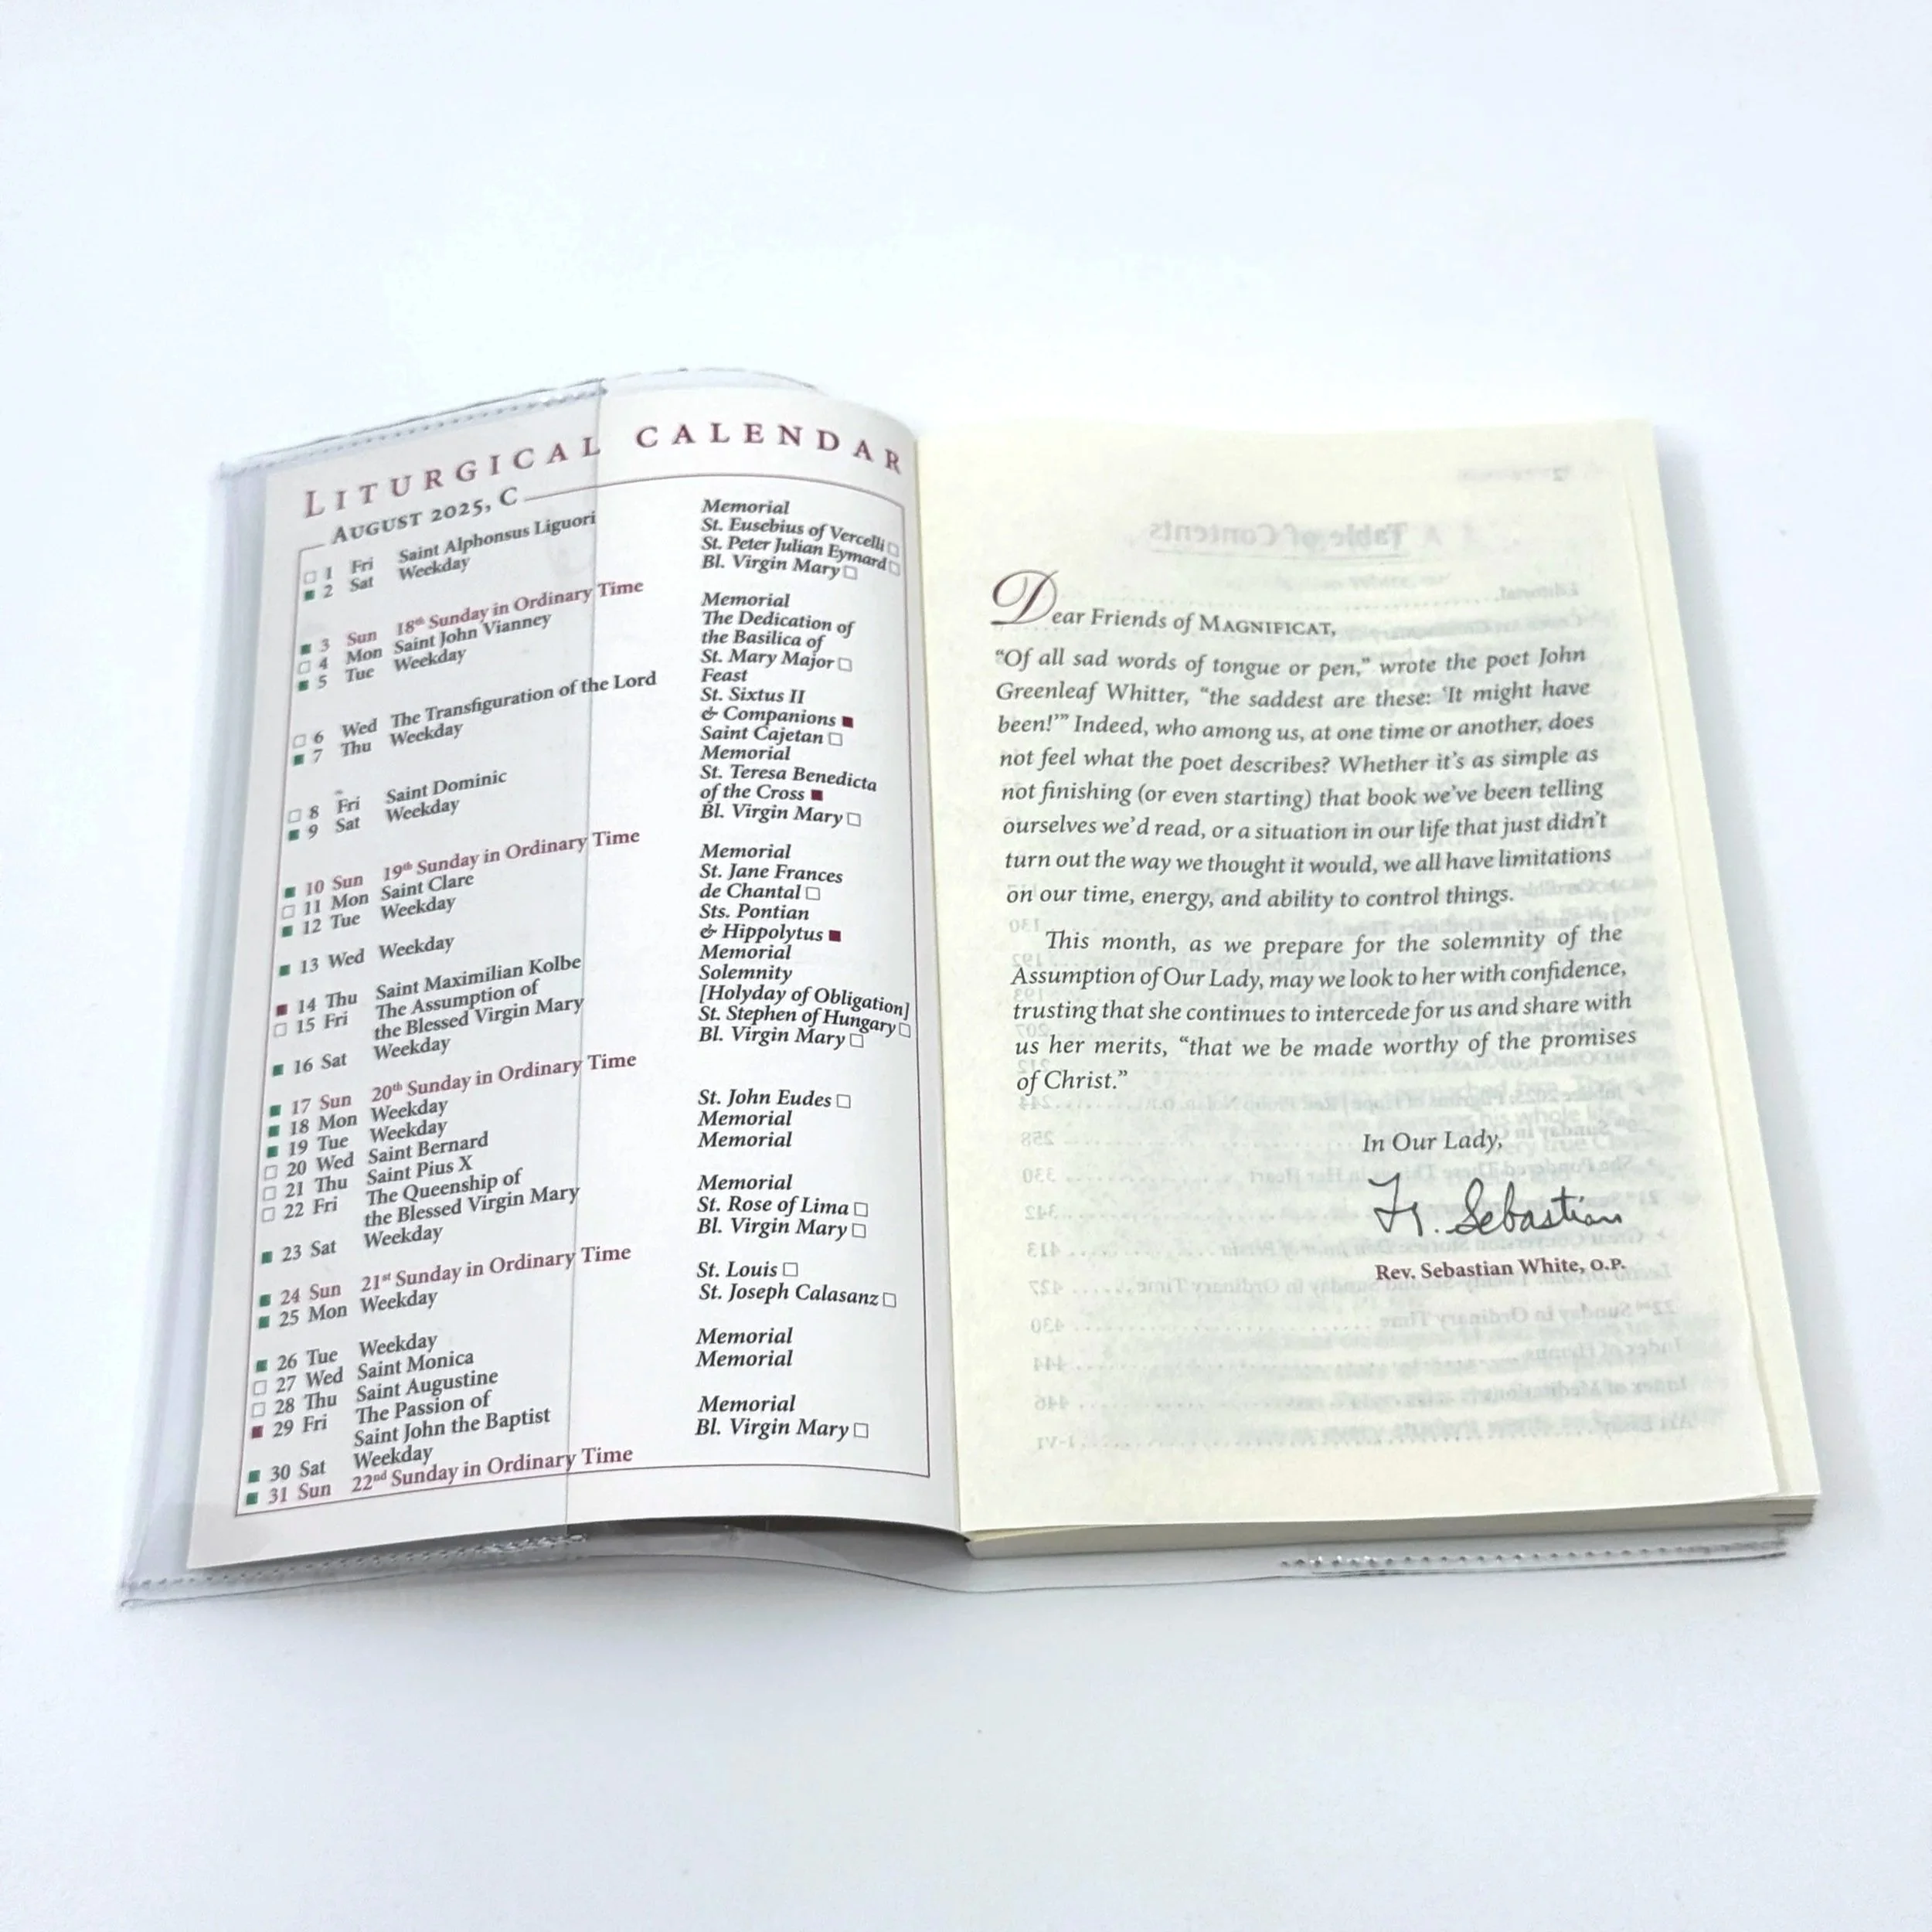 LITURGICAL CALENDAR
AUGUST 2025, C
□ 1 Fri Saint Alphonsus Liguori Memorial
■ 2 Sat Weekday St. Eusebius of Vercelli □
St. Peter Julian Eymard □
Bl. Virgin Mary □
■ 3 Sun 18th Sunday in Ordinary Time
□ 4 Mon Saint John Vianney Memorial
■ 5 Tue Weekday The Dedication of
the Basilica of
St. Mary Major □
□ 6 Wed The Transfiguration of the Lord Feast
■ 7 Thu Weekday St. Sixtus II
& Companions ■
Saint Cajetan □
□ 8 Fri Saint Dominic Memorial
■ 9 Sat Weekday St. Teresa Benedicta
of the Cross ■
Bl. Virgin Mary □
■ 10 Sun 19th Sunday in Ordinary Time
□ 11 Mon Saint Clare Memorial
■ 12 Tue Weekday St. Jane Frances
de Chantal □
■ 13 Wed Weekday Sts. Pontian
& Hippolytus ■
■ 14 Thu Saint Maximilian Kolbe Memorial
□ 15 Fri The Assumption of Solemnity
the Blessed Virgin Mary [Holyday of Obligation]
■ 16 Sat Weekday St. Stephen of Hungary □
Bl. Virgin Mary □
■ 17 Sun 20th Sunday in Ordinary Time
■ 18 Mon Weekday
■ 19 Tue Weekday St. John Eudes □
□ 20 Wed Saint Bernard Memorial
□ 21 Thu Saint Pius X Memorial
□ 22 Fri The Queenship of
the Blessed Virgin Mary Memorial
■ 23 Sat Weekday St. Rose of Lima □
Bl. Virgin Mary □
■ 24 Sun 21st Sunday in Ordinary Time
■ 25 Mon Weekday St. Louis □
St. Joseph Calasanz □
■ 26 Tue Weekday
□ 27 Wed Saint Monica Memorial
□ 28 Thu Saint Augustine Memorial
■ 29 Fri The Passion of
Saint John the Baptist Memorial
■ 30 Sat Weekday Bl. Virgin Mary □
■ 31 Sun 22nd Sunday in Ordinary Time
Dear Friends of MAGNIFICAT,
“Of all sad words of tongue or pen,” wrote the poet John
Greenleaf Whitter, “the saddest are these: ‘It might have
been!’” Indeed, who among us, at one time or another, does
not feel what the poet describes? Whether it’s as simple as
not finishing (or even starting) that book we’ve been telling
ourselves we’d read, or a situation in our life that just didn’t
turn out the way we thought it would, we all have limitations
on our time, energy, and ability to control things.
This month, as we prepare for the solemnity of the
Assumption of Our Lady, may we look to her with confidence,
trusting that she continues to intercede for us and share with
us her merits, “that we be made worthy of the promises
of Christ.”
In Our Lady,
Fr. Sebastian
Rev. Sebastian White, O.P.